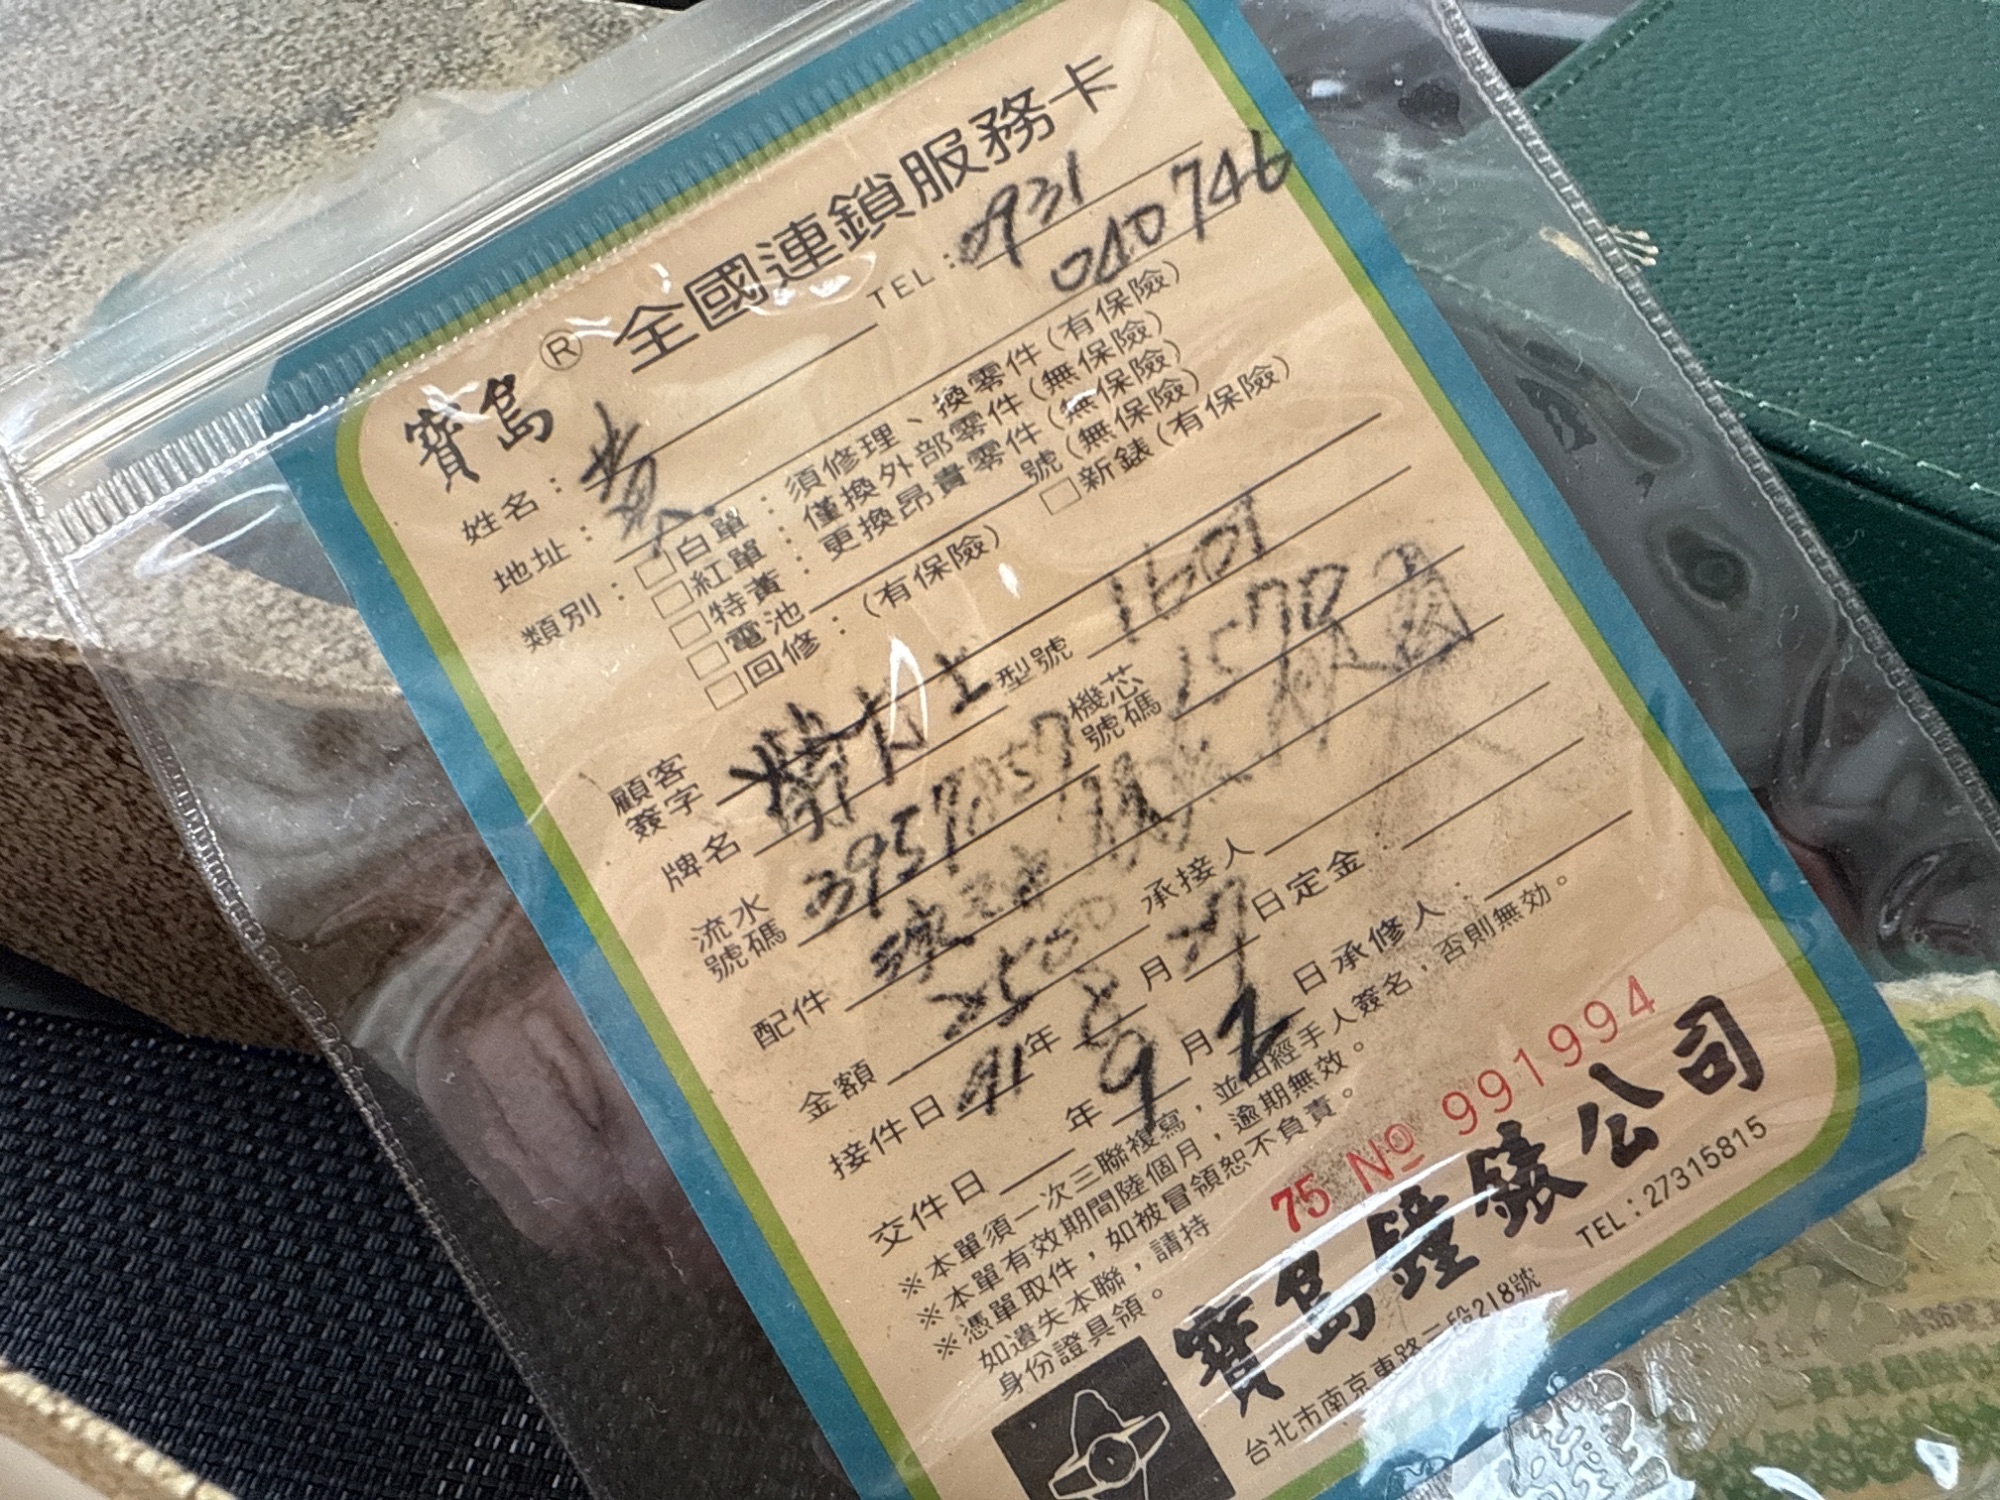 寶島® 全國連鎖服務卡
姓名：黃 TEL：0931
040746
地址：
類別：□白單：須修理、換零件（有保險）
□紅單：僅換外部零件（無保險）
□特黃：更換昂貴零件（無保險）
□電池 號（無保險）
□回修：（有保險） □新錶（有保險）
顧客簽字
牌名 勞力士 型號 1601
流水號碼 3957057 機芯號碼 1570
配件
金額 25500 承接人
接件日 91 年 8 月 日 定金：
交件日 年 9 月 2 日 承修人：
※本單須一次三聯複寫，並由經手人簽名，否則無効。
※本單有效期間陸個月，逾期無效。
※憑單取件，如被冒領恕不負責。
如遺失本聯，請持
身份證具領。
75 № 991994
寶島鐘錶公司
台北市南京東路二段218號
TEL：27315815